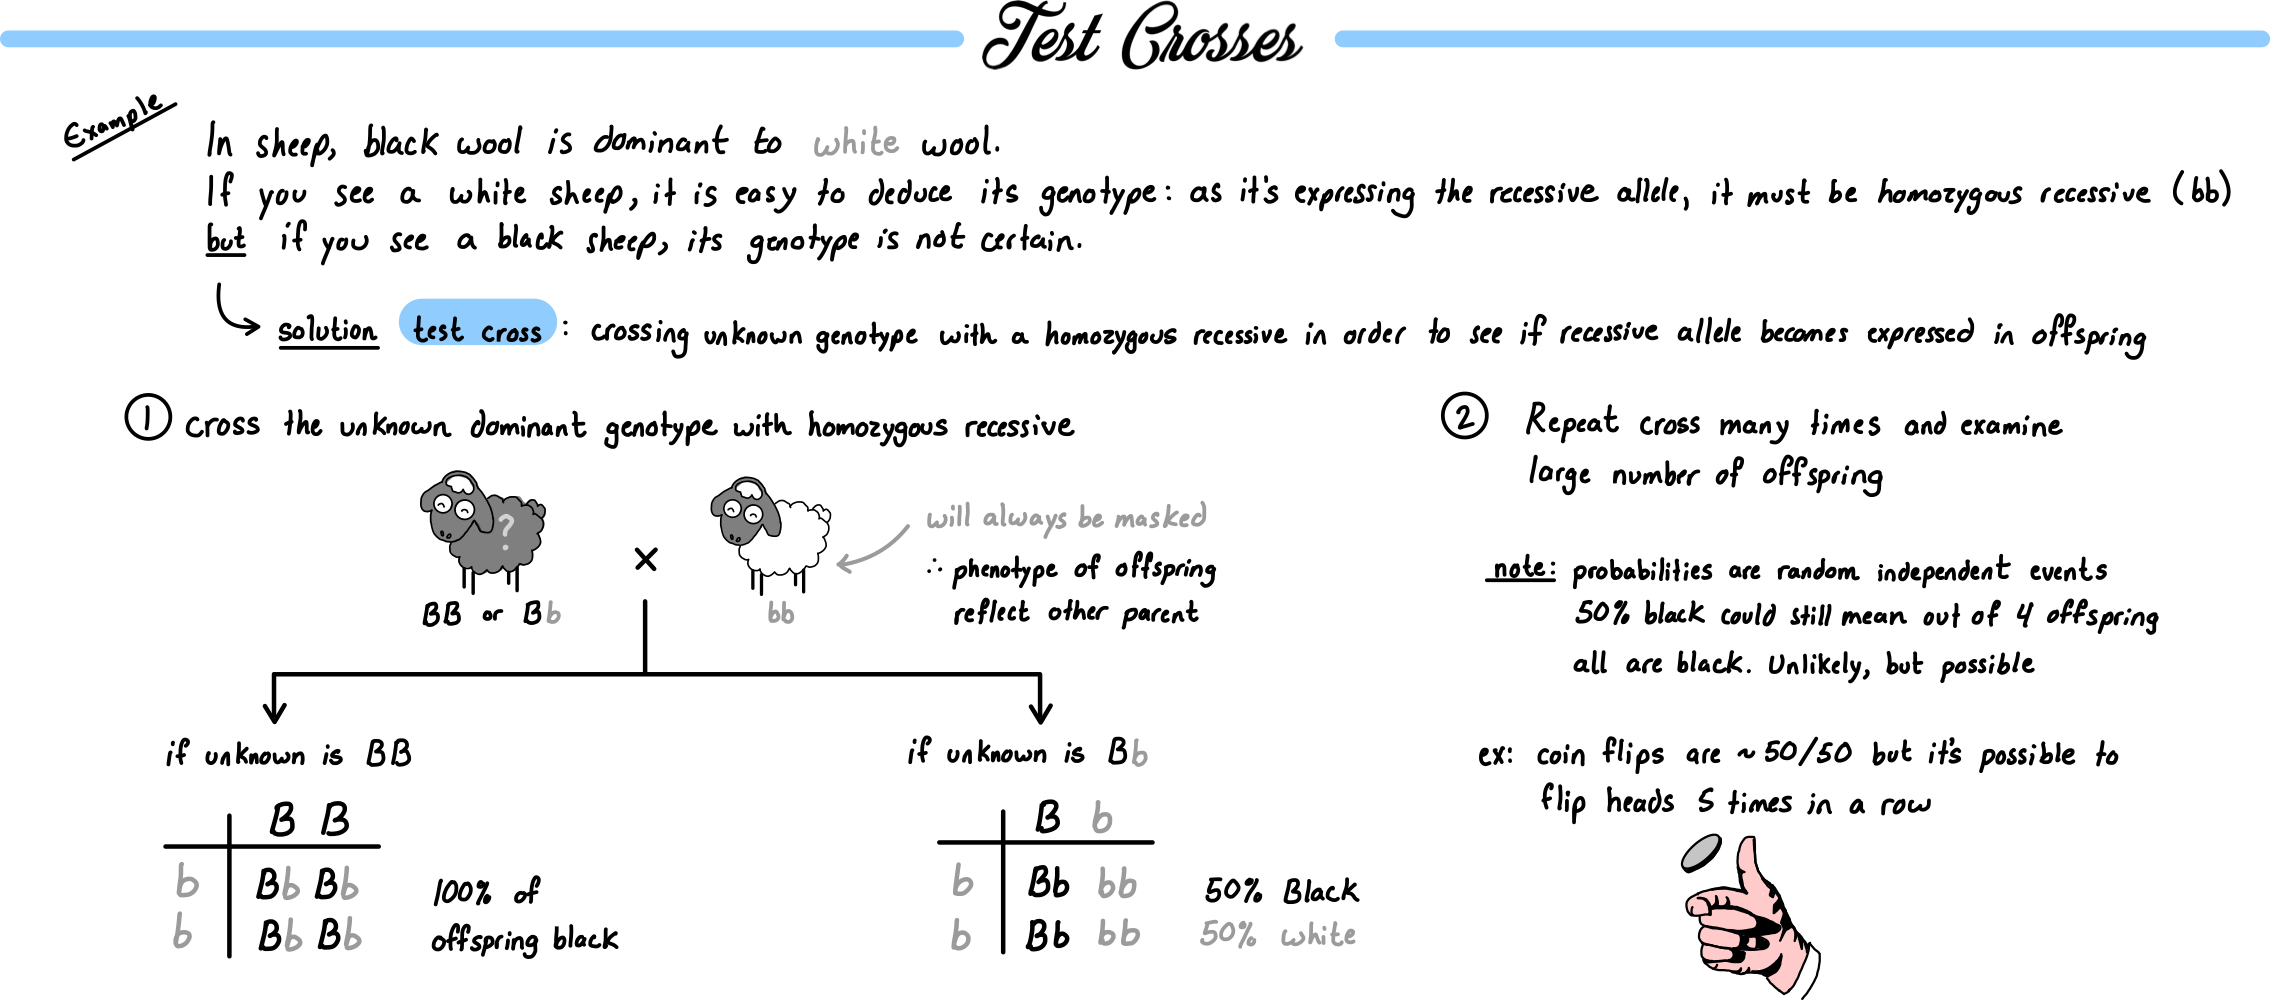 Test Crosses
Example
In sheep, black wool is dominant to white wool.
If you see a white sheep, it is easy to deduce its genotype: as it's expressing the recessive allele, it must be homozygous recessive (bb)
but if you see a black sheep, its genotype is not certain.
solution test cross: crossing unknown genotype with a homozygous recessive in order to see if recessive allele becomes expressed in offspring
① cross the unknown dominant genotype with homozygous recessive
?
×
BB or Bb
bb
will always be masked
∴ phenotype of offspring
reflect other parent
if unknown is BB
B B
b Bb Bb
b Bb Bb
100% of
offspring black
if unknown is Bb
B b
b Bb bb
b Bb bb
50% Black
50% white
② Repeat cross many times and examine
large number of offspring
note: probabilities are random independent events
50% black could still mean out of 4 offspring
all are black. Unlikely, but possible
ex: coin flips are ~50/50 but it's possible to
flip heads 5 times in a row